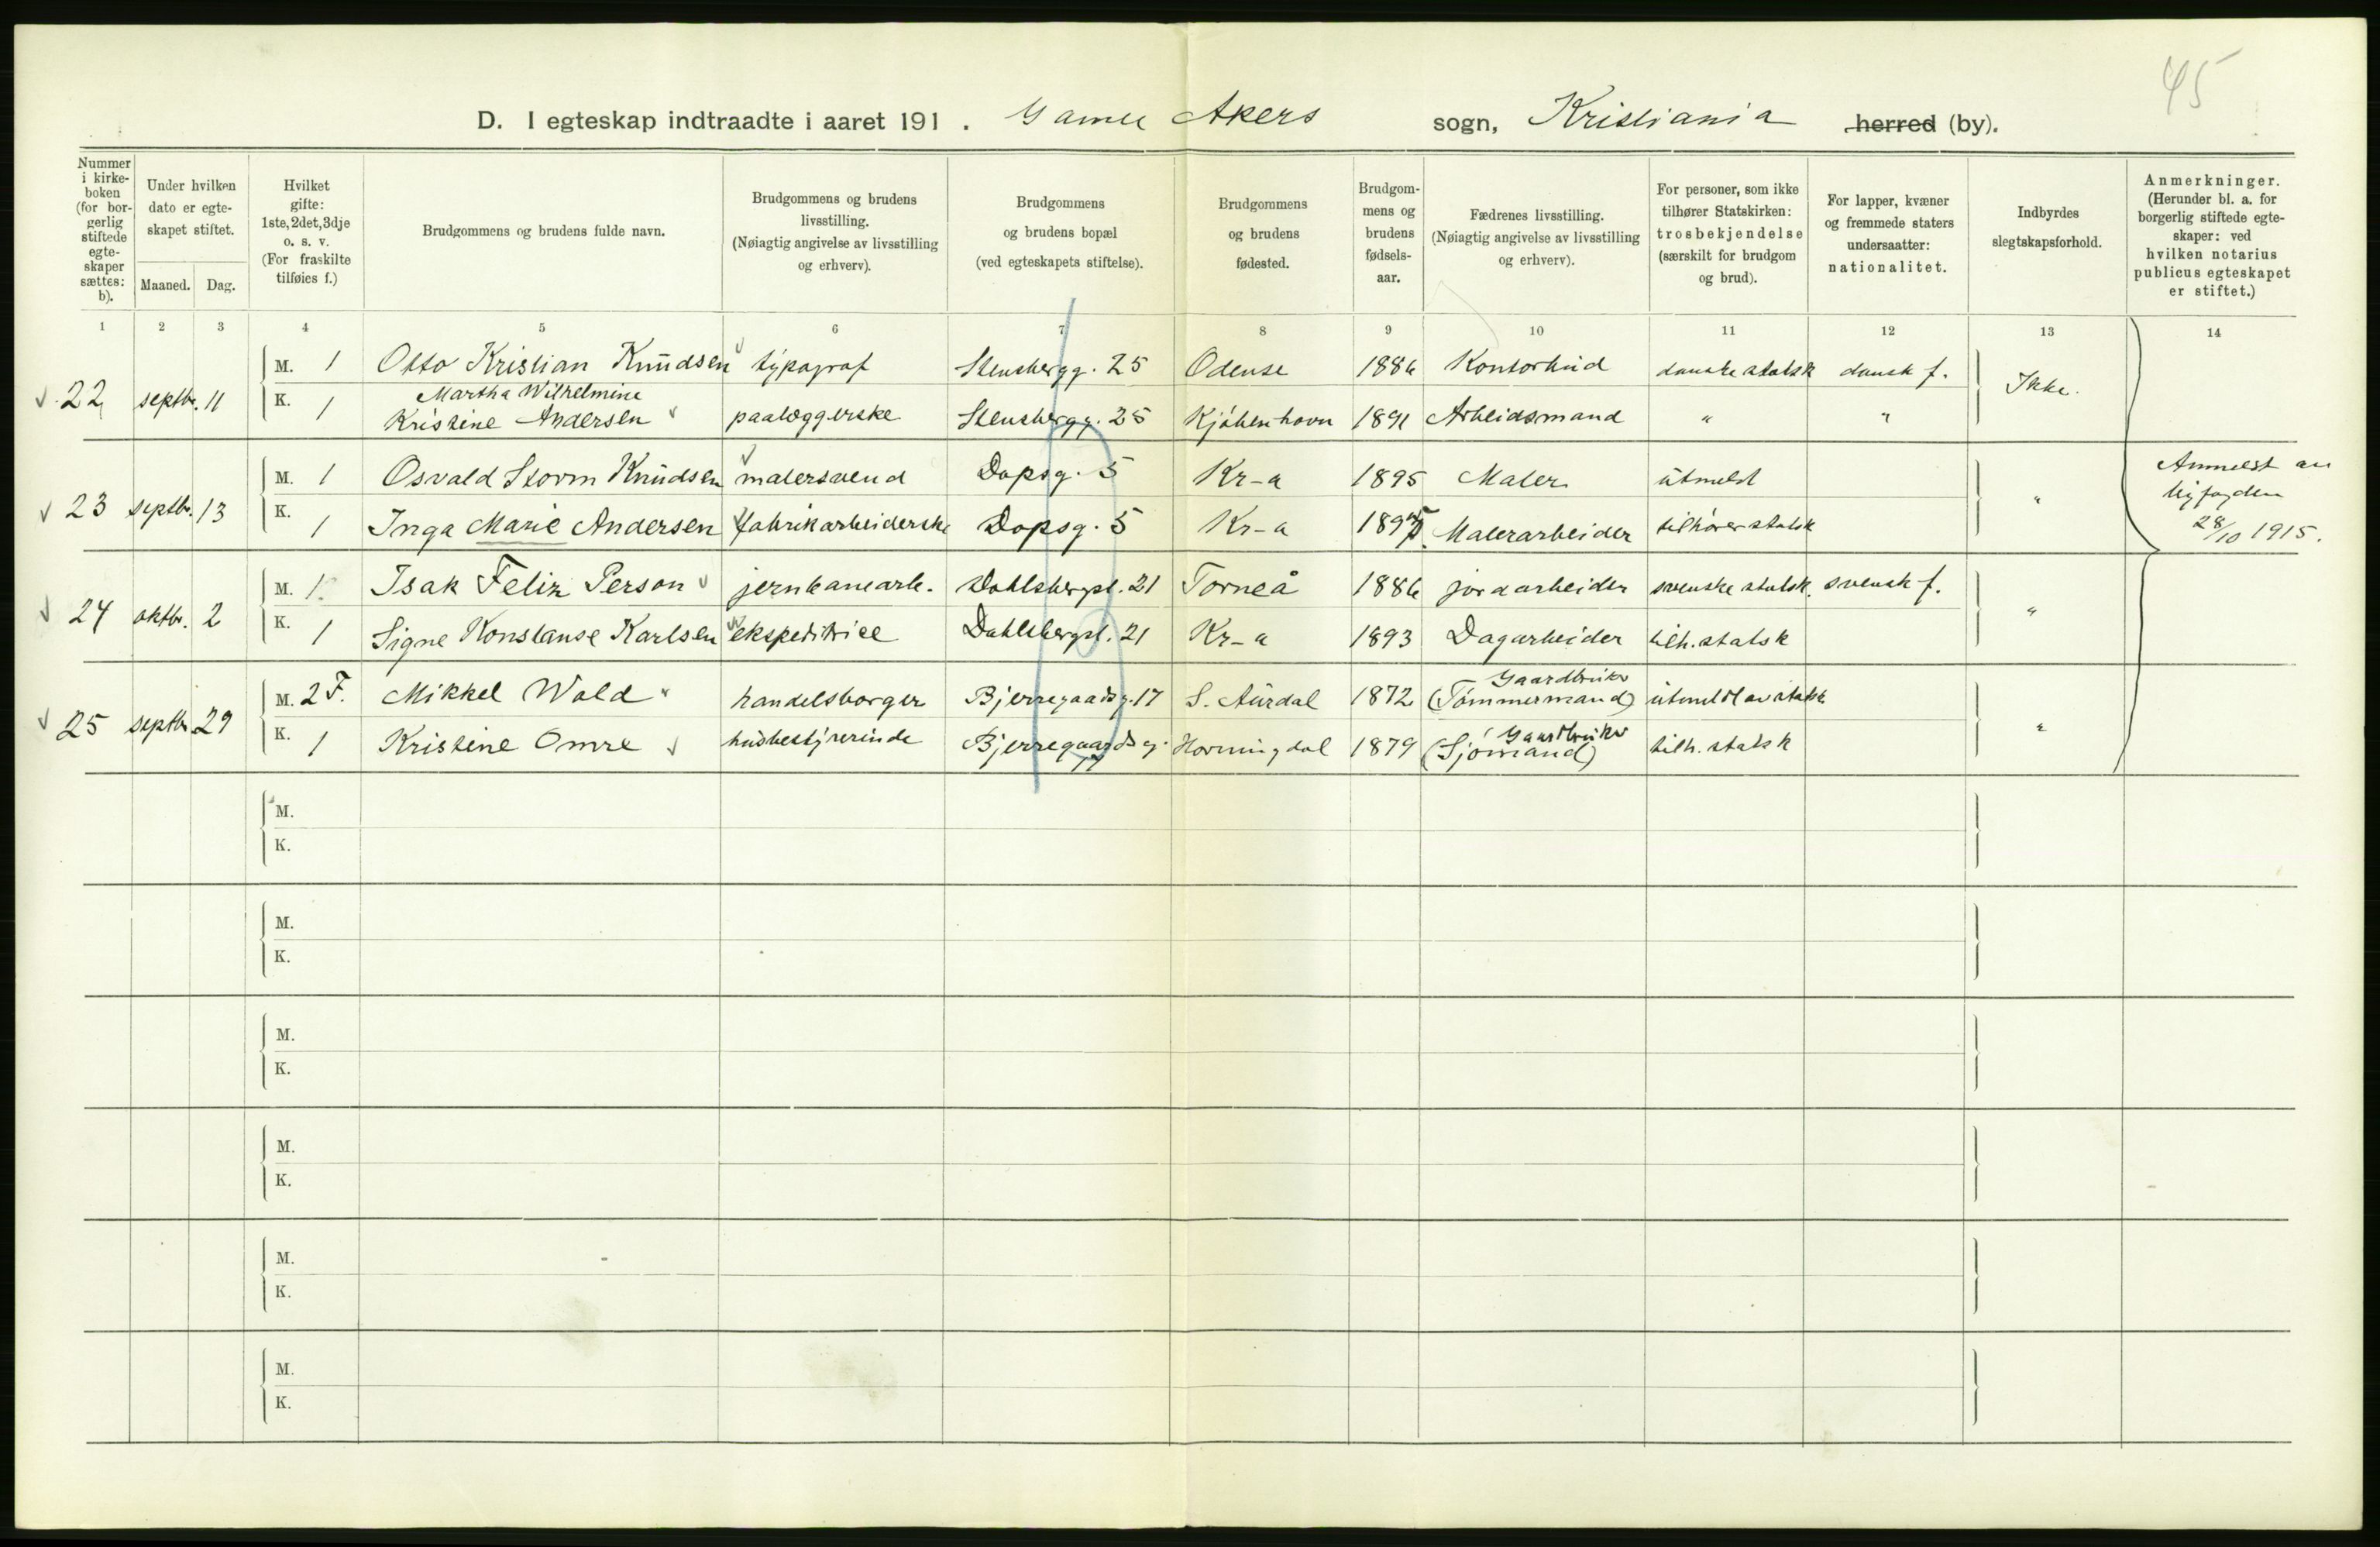 45
D. I egteskap indtraadte i aaret 191 . Gamle Akers sogn, Kristiania herred (by).
Nummer i kirke-boken (for bor-gerlig stiftede egte-skaper sættes: b).
Under hvilken dato er egte-skapet stiftet.
Maaned. Dag.
Hvilket gifte: 1ste, 2det, 3dje o. s. v. (For fraskilte tilføies f.)
Brudgommens og brudens fulde navn.
Brudgommens og brudens livsstilling. (Nøiagtig angivelse av livsstilling og erhverv).
Brudgommens og brudens bopæl (ved egteskapets stiftelse).
Brudgommens og brudens fødested.
Brudgom-mens og brudens fødsels-aar.
Fædrenes livsstilling. (Nøiagtig angivelse av livsstilling og erhverv).
For personer, som ikke tilhører Statskirken: trosbekjendelse (særskilt for brudgom og brud).
For lapper, kvæner og fremmede staters undersaatter: nationalitet.
Indbyrdes slegtskapsforhold.
Anmerkninger. (Herunder bl. a. for borgerlig stiftede egte-skaper: ved hvilken notarius publicus egteskapet er stiftet.)
1 2 3 4 5 6 7 8 9 10 11 12 13 14
22 septbr. 11 M. 1 Otto Kristian Knudsen typograf Stensbergg. 25 Odense 1886 Kontorbud danske statsk dansk f. Ikke.
K. 1 Martha Wilhelmine Kristine Andersen paalæggerske Stensbergg. 25 Kjøbenhavn 1891 Arbeidsmand " "
23 septbr. 13 M. 1 Osvald Storm Knudsen malersvend Dopsg. 5 Kr-a 1895 Maler utmeldt " Anmeldt av
byfogden
28/10 1915.
K. 1 Inga Marie Andersen fabrikarbeiderske Dopsg. 5 Kr-a Malerarbeider tilhører statsk
24 oktbr. 2 M. 1 Isak Felix Person jernbanearb. Dahlsbergst. 21 Torneå 1886 jordarbeider svenske statsk. svensk f. "
K. 1 Signe Konstanse Karlsen ekspeditrice Dahlsbergst. 21 Kr-a 1893 Dagarbeider tilh. statsk
25 septbr. 29 M. 2 F. Mikkel Wold handelsborger Bjerregaardsg. 17 S. Aurdal 1872 Gaardbruker (Tømmermand) utmeldt av statsk "
K. 1 Kristine Omre husbestyrerinde Bjerregaardsg. 17 Horningdal 1879 Gaardbruker (Sjømand) tilh. statsk
M.
K.
M.
K.
M.
K.
M.
K.
M.
K.
M.
K.